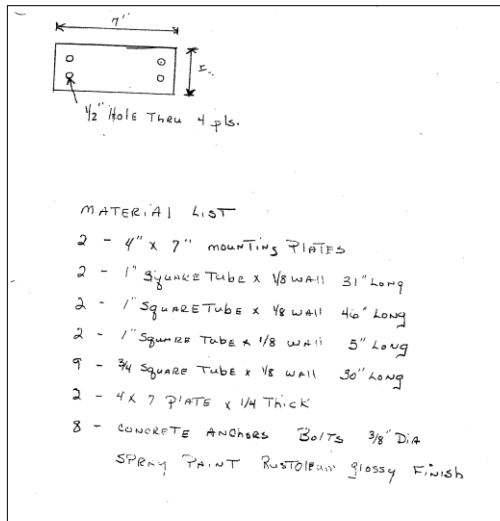 7"
4"
1/2" Hole Thru 4 pls.
MATERIAl LIST
2 - 4" x 7" mounTing PlATES
2 - 1" SquareTube x 1/8 wAll 31" Long
2 - 1" SquareTube x 1/8 wAll 46" Long
2 - 1" Square Tube x 1/8 wAll 5" Long
9 - 3/4 Square Tube x 1/8 wAll 30" Long
2 - 4 x 7 PlATE x 1/4 Thick
8 - CONCRETE ANCHORS BolTS 3/8" DiA
SPRAY PAINT RusTOleum glossy FINISH